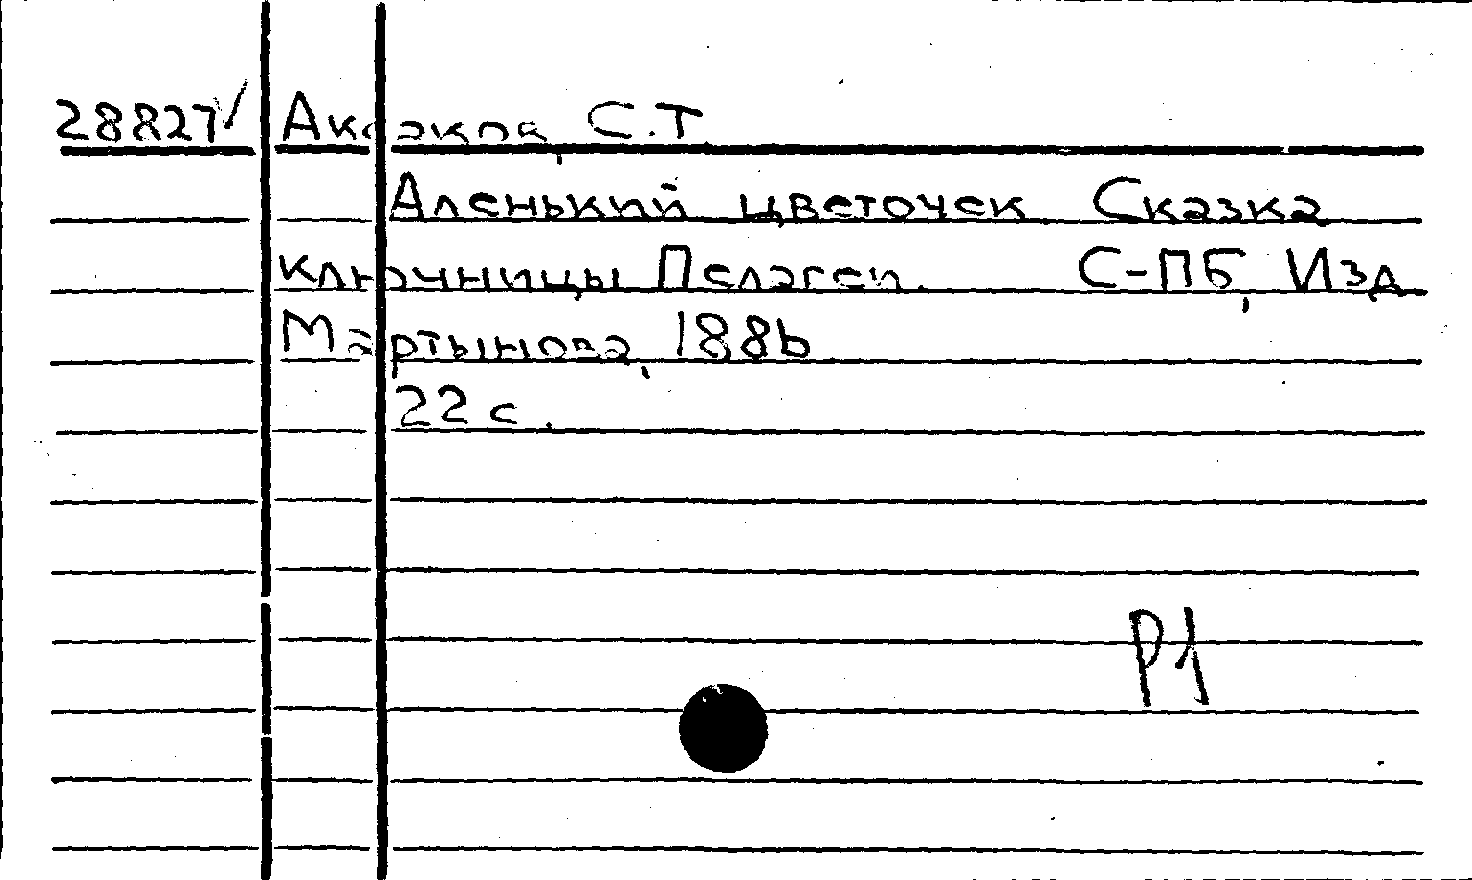 28827✓ Аксаков, С.Т.
Аленький цветочек Сказка
ключницы Пелагеи. С-ПБ, Изд
Мартынова, 1886
22 с.
Р1